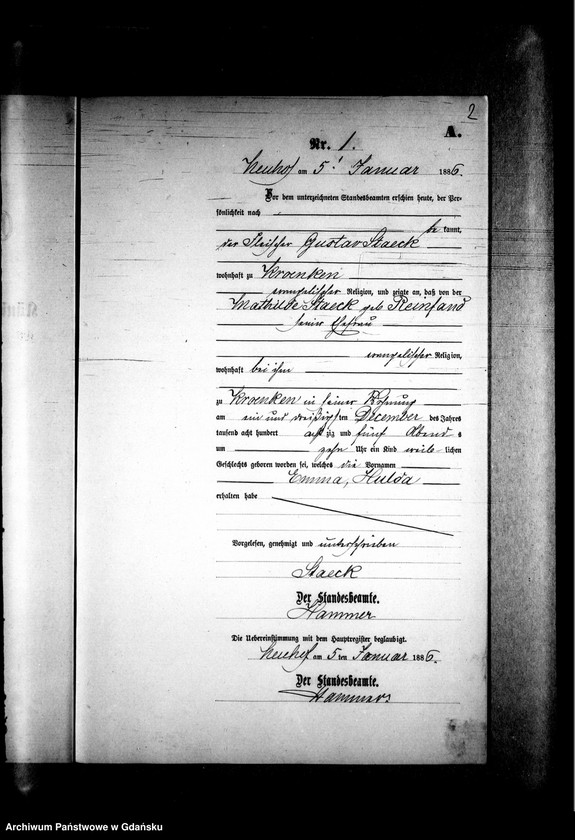 2
A.
Nr. 1.
Neuhof am 5t Januar 1886.
Vor dem unterzeichneten Standesbeamten erschien heute, der Per-
sönlichkeit nach
be kannt,
der Fleischer Gustav Staeck
wohnhaft zu Kroenken
evangelischer Religion, und zeigte an, daß von der
Mathilde Staeck geb Reinfand
seine Ehefrau
evangelischer Religion,
wohnhaft bei ihm
zu Kroenken in seiner Wohnung
am ein und dreißigsten December des Jahres
tausend acht hundert acht zig und fünf Abend s
um zehn Uhr ein Kind weib lichen
Geschlechts geboren worden sei, welches die Vornamen
Emma, Hulda
erhalten habe
Vorgelesen, genehmigt und unterschrieben
Staeck
Der Standesbeamte.
Hammer
Die Uebereinstimmung mit dem Hauptregister beglaubigt.
Neuhof am 5 ten Januar 1886.
Der Standesbeamte.
Archiwum Państwowe w Gdańsku